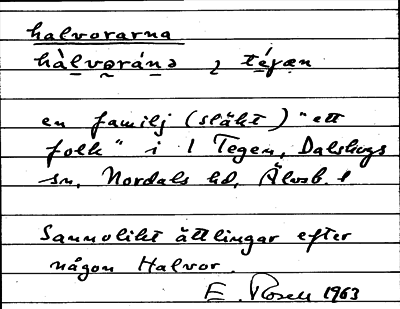 halvorarna
hàlvoránə, i tégæn
en familj (släkt) "ett
folk" i l Tegen, Dalskogs
sn, Nordals hd, Älvsb. l
Sannolikt ättlingar efter
någon Halvor.
E. Rosell 1963